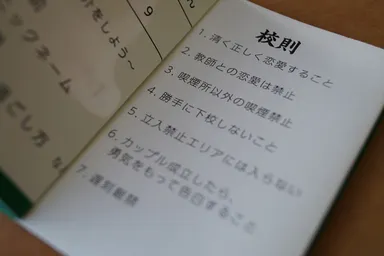 をしよう〜
ックネーム
過ごし方
9
校則
1. 清く正しく恋愛すること
2. 教師との恋愛は禁止
3. 喫煙所以外の喫煙禁止
4. 勝手に下校しないこと
5. 立入禁止エリアには入らない
6. カップル成立したら、
勇気をもって告白すること
7. 遅刻厳禁